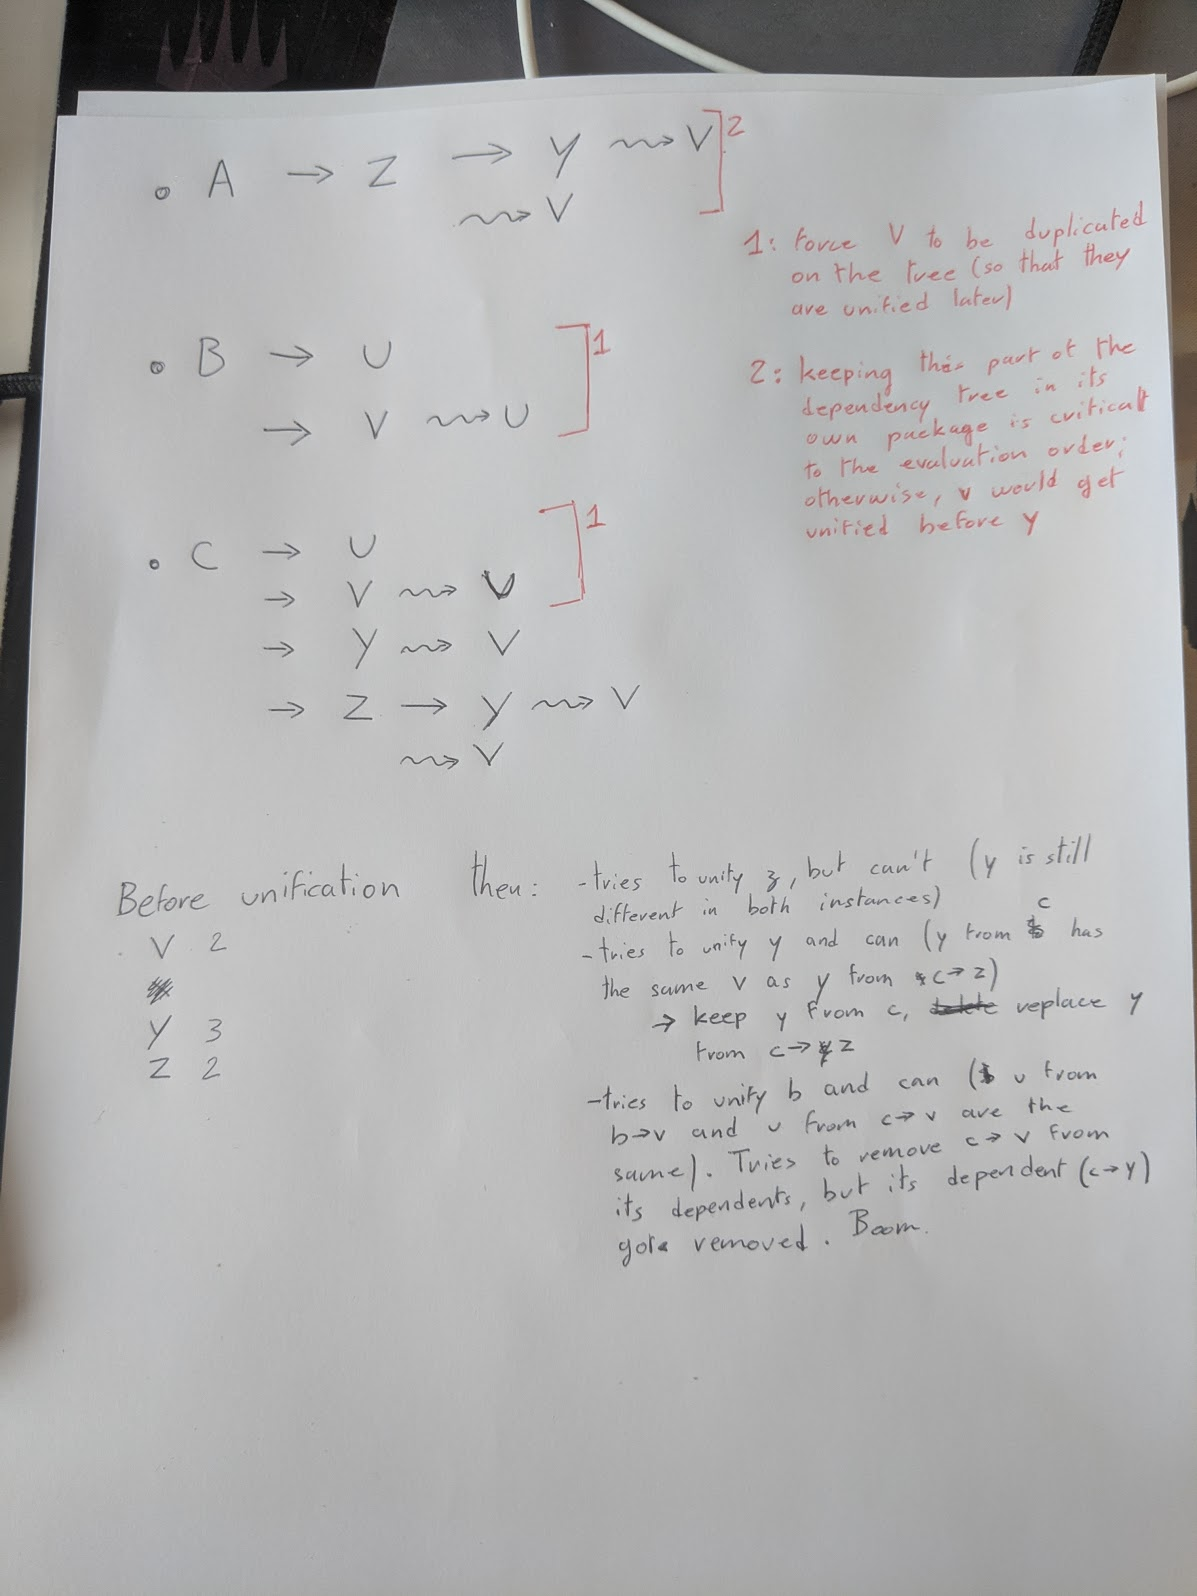 A → Z → Y ⇝ V ] 2
⇝ V
1: force V to be duplicated
on the tree (so that they
are unified later)
B → U ] 1
→ V ⇝ U
2: keeping this part of the
dependency tree in its
own package is critical
to the evaluation order;
otherwise, v would get
unified before y
C → U ] 1
→ V ⇝ U
→ Y ⇝ V
→ Z → Y ⇝ V
⇝ V
Before unification
V 2
Y 3
Z 2
then: - tries to unify z, but can't (y is still
different in both instances)
- tries to unify y and can (y from c has
the same v as y from c→z)
→ keep y from c, delete replace y
from c→z
- tries to unify b and can (u from
b→v and u from c→v are the
same). Tries to remove c→v from
its dependents, but its dependent (c→y)
got removed. Boom.